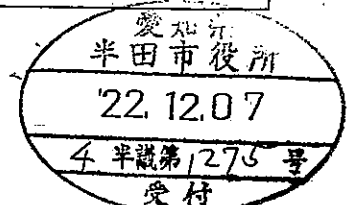 愛知県
半田市役所
'22.12.07
4半議第1275号
受付